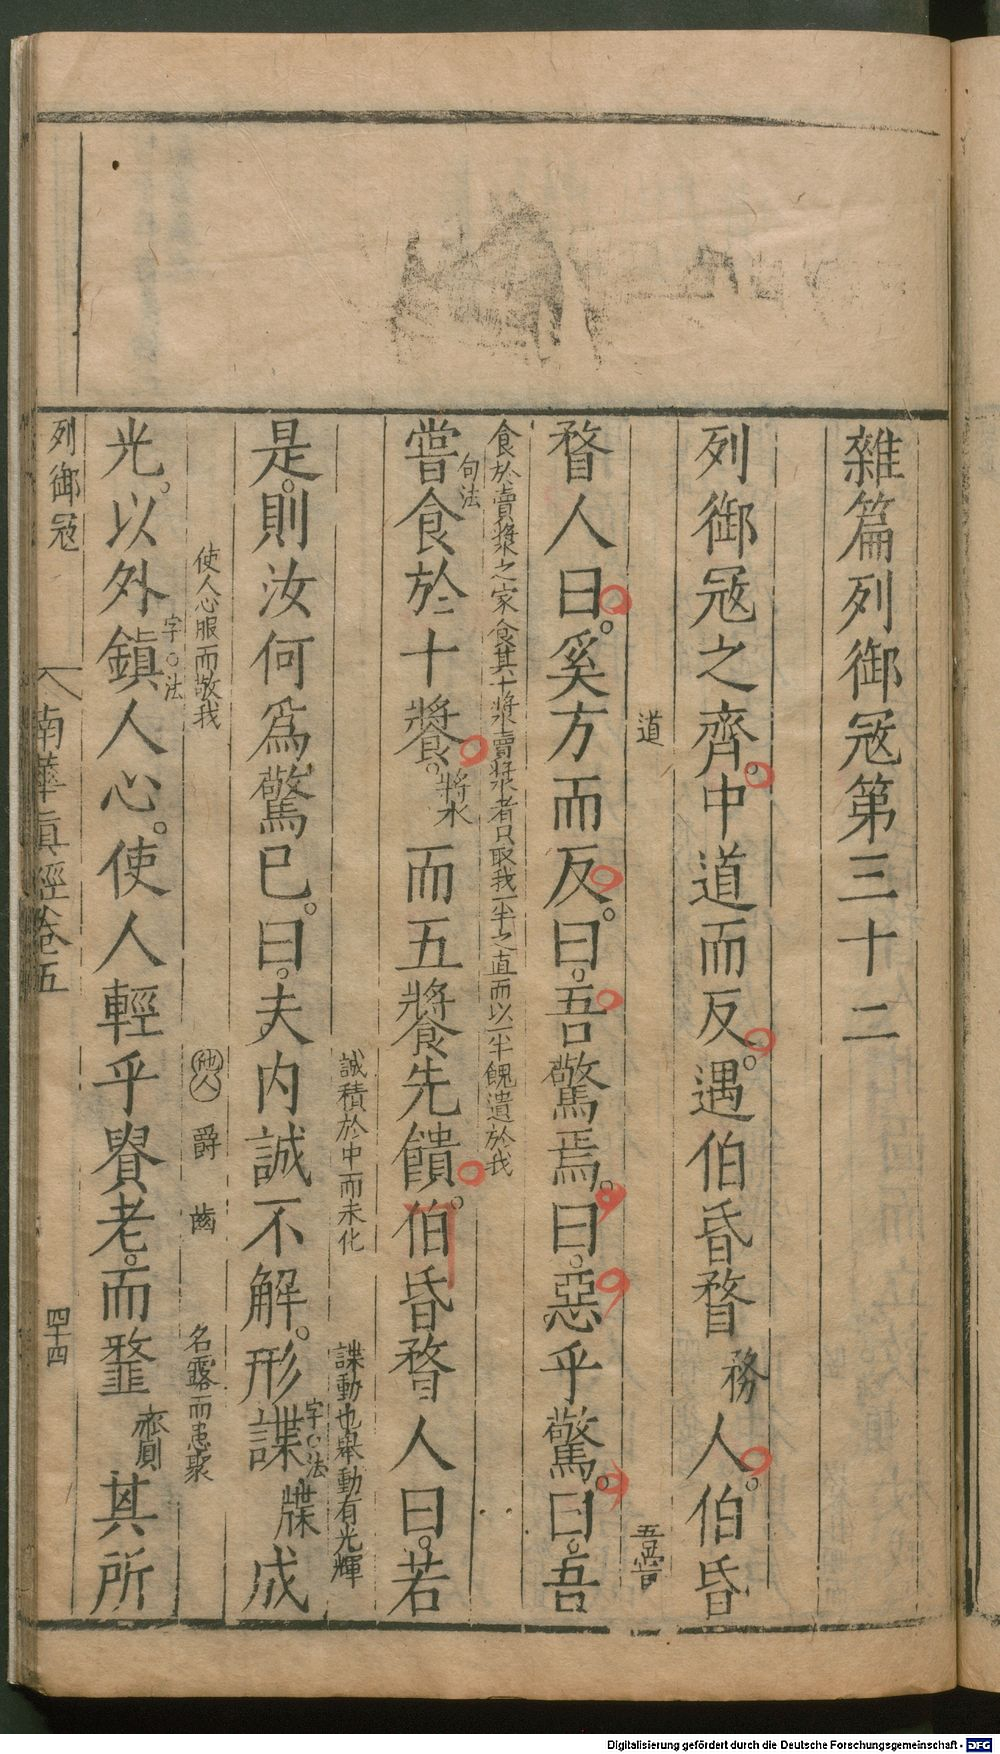 雜篇列御冦第三十二
列御冦之齊。中道而反。遇伯昏瞀務人。伯昏
道
吾嘗
瞀人曰。奚方而反。曰。吾驚焉。曰。惡乎驚。曰。吾
食於賣漿之家食其十漿賣漿者只取我一半之直而以一半餽遺於我
句法
嘗食於十䬺。將水而五䬺先饋。伯昏瞀人曰。若
誠積於中而未化
諜動也舉動有光輝
是。則汝何爲驚已。曰。夫内誠不解。形諜牒成
字法
使人心服而敬我
他人
爵
齒
名露而患聚
光。以外鎮人心。使人輕乎貴老。而䪠其所
字法
列御冦
南華眞經卷五
四十四
Digitalisierung gefördert durch die Deutsche Forschungsgemeinschaft - DFG